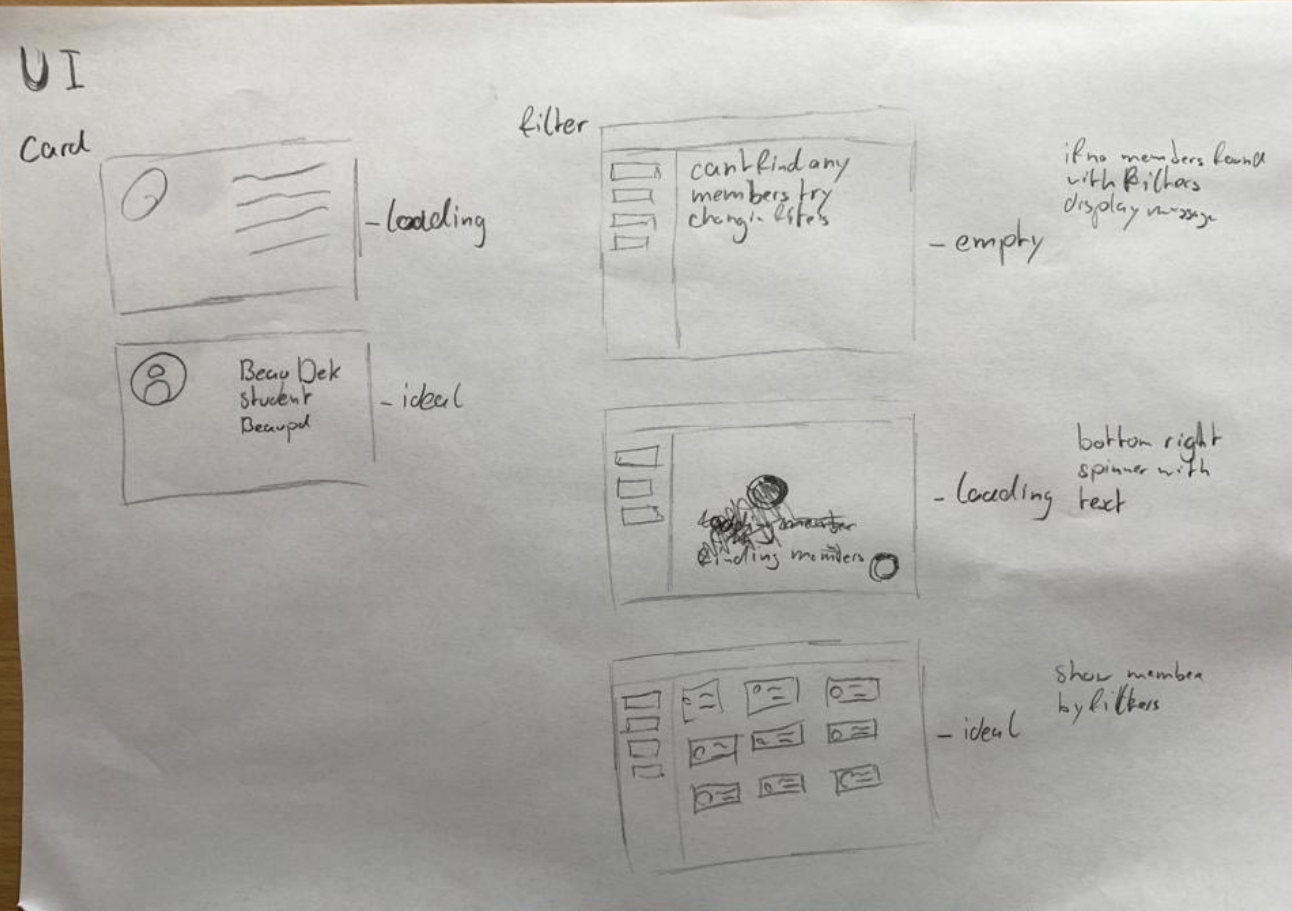 UI
Card
- loading
Beau Dek
student
- ideal
filter
cant find any
members try
changin
- empty
if no members found
with filters
display message
finding members
- loading
bottom right
spinner with
text
- ideal
show member
by filters